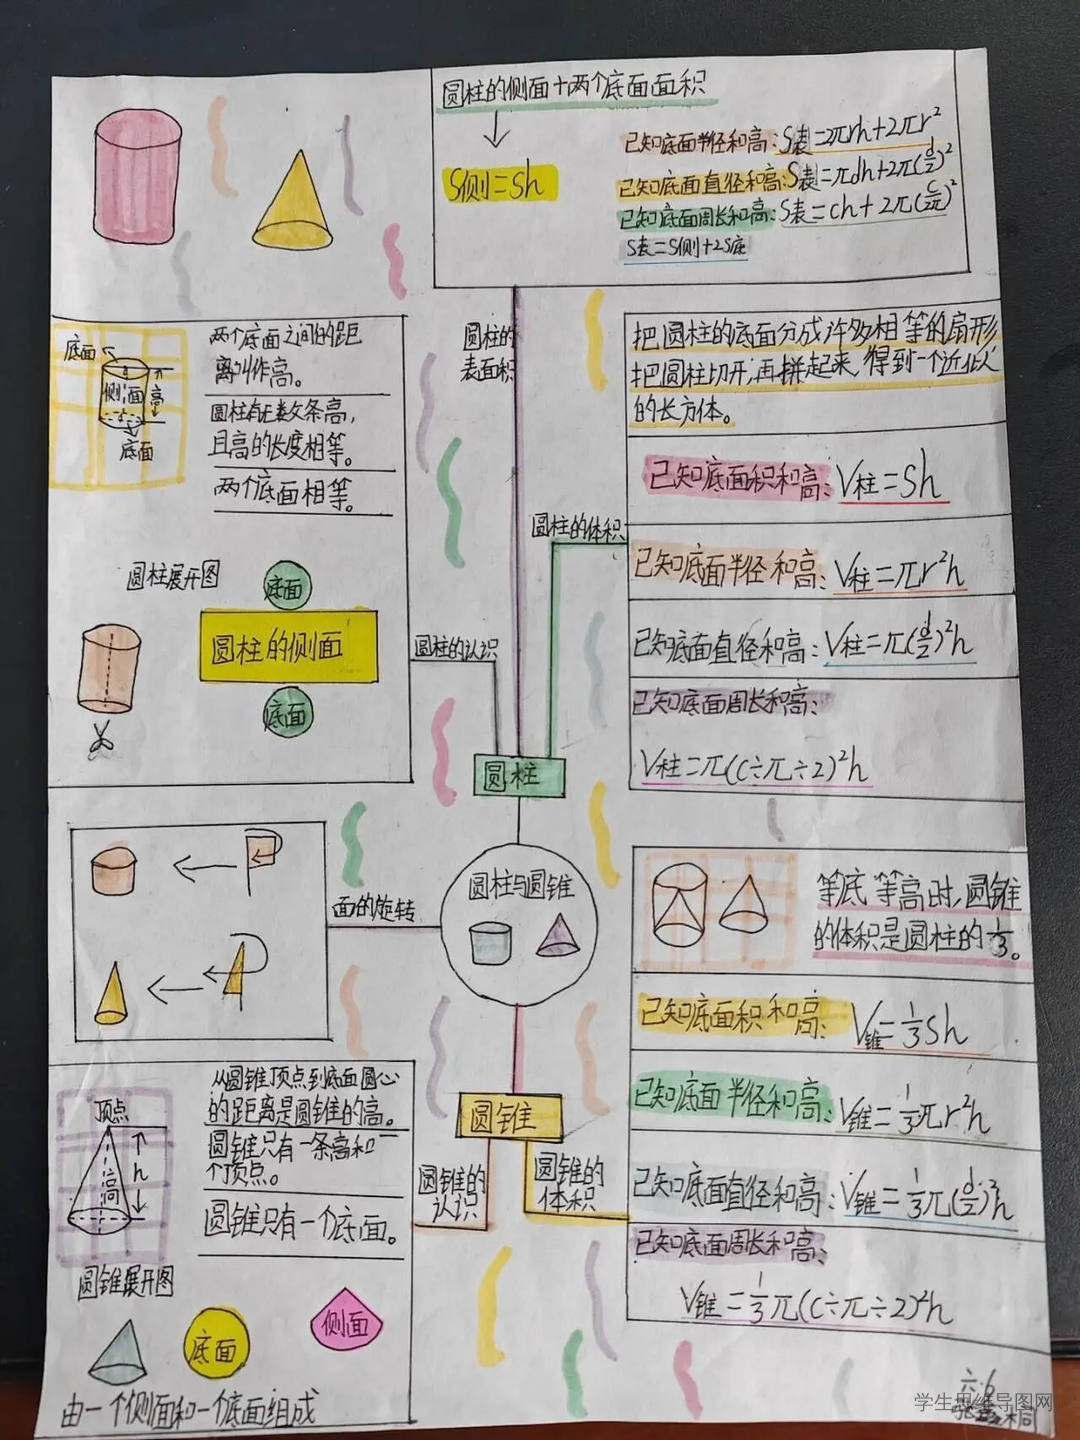 圆柱的侧面+两个底面面积
S侧=Sh
已知底面半径和高:S表=2πrh+2πr²
已知底面直径和高:S表=πdh+2π(d/2)²
已知底面周长和高:S表=ch+2π(c/2π)²
S表=S侧+2S底
圆柱的
表面积
底面
侧面
高
底面
两个底面之间的距
离叫作高。
圆柱有无数条高,
且高的长度相等。
两个底面相等。
圆柱展开图
底面
圆柱的侧面
底面
圆柱的认识
把圆柱的底面分成许多相等的扇形
把圆柱切开,再拼起来,得到一个近似
的长方体。
圆柱的体积
已知底面积和高:V柱=Sh
已知底面半径和高:V柱=πr²h
已知底面直径和高:V柱=π(d/2)²h
已知底面周长和高:
V柱=π(C÷π÷2)²h
圆柱
圆柱与圆锥
面的旋转
等底等高时,圆锥
的体积是圆柱的1/3。
已知底面积和高:V锥=1/3Sh
已知底面半径和高:V锥=1/3πr²h
已知底面直径和高:V锥=1/3π(d/2)²h
已知底面周长和高:
V锥=1/3π(C÷π÷2)²h
圆锥
圆锥的
认识
圆锥的
体积
顶点
h
高
从圆锥顶点到底面圆心
的距离是圆锥的高。
圆锥只有一条高和一
个顶点。
圆锥只有一个底面。
圆锥展开图
底面
侧面
由一个侧面和一个底面组成
六·6
学生思维导图网